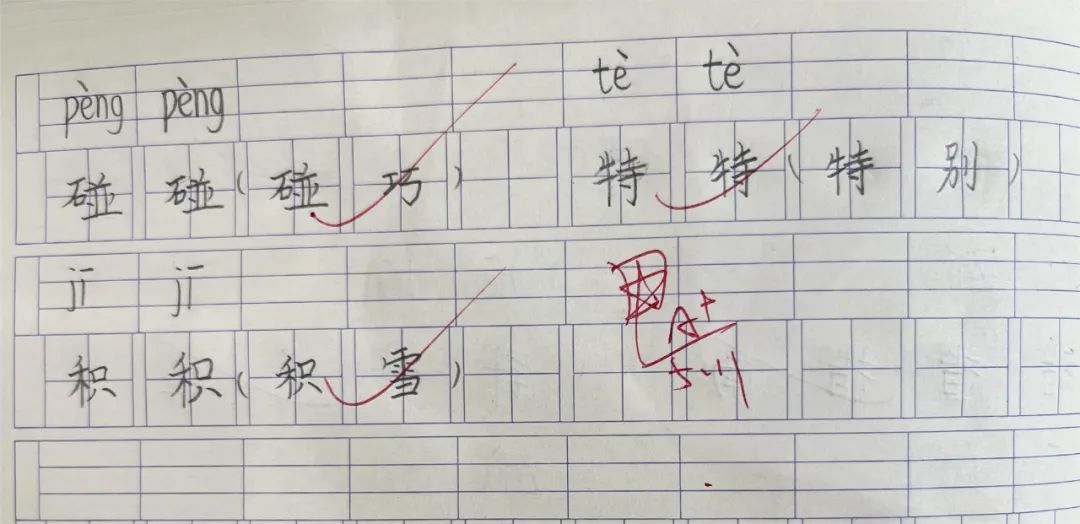 pèng pèng tè tè
碰碰(碰巧) 特特(特别)
jī jī
积积(积雪)
A+
5.11